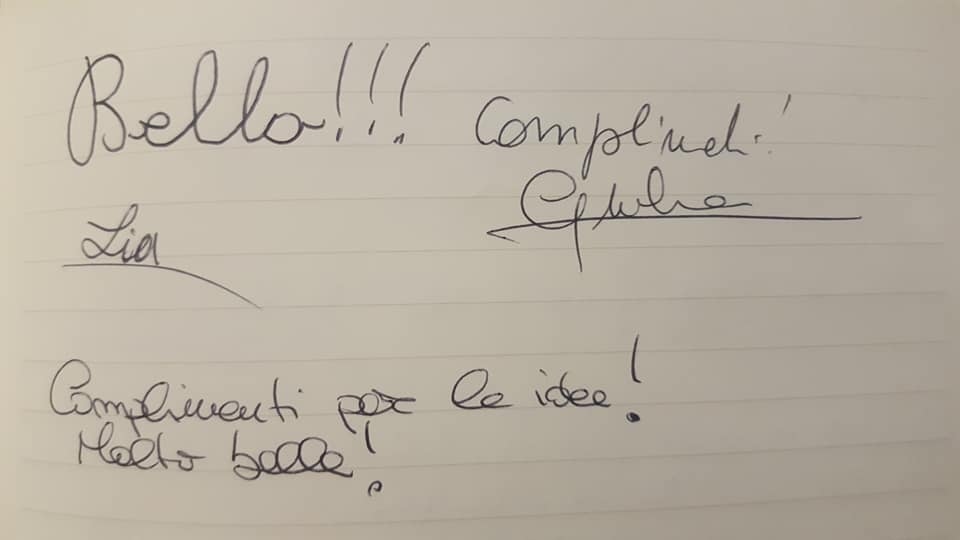 Bello!!!
Complimenti!
Giulia
Lia
Complimenti per le idee!
Molto belle!